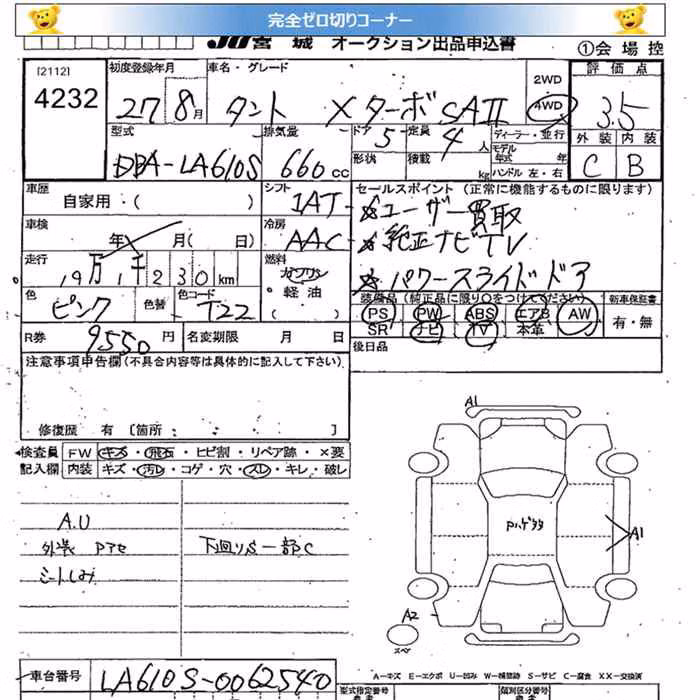 完全ゼロ切りコーナー
JU宮城 オークション出品申込書
①会場控
[2112]
4232
初度登録年月
27 8月
車名・グレード
タント Xターボ SAII
2WD
4WD
評価点
3.5
外装 内装
C B
型式
DBA-LA610S
排気量
660cc
ドア 5
形状
定員 4人
積載 kg
ディーラー・並行
モデル年式 年
ハンドル 左・右
車歴
自家用・( )
シフト
IAT
セールスポイント(正常に機能するものに限ります)
☆ユーザー買取
☆純正ナビTV
☆パワースライドドア
車検
年 月( 日)
冷房
AAC
走行
19万1千230km
燃料
ガソリン
軽油
( )
色
ピンク
色替
色コード
T22
装備品(純正品に限り○をつけてください)
PS PW ABS エアB AW
SR ナビ TV 本革
新車保証書
有・無
R券
9550円
名変期限 月 日
後日品
注意事項申告欄(不具合内容等は具体的に記入して下さい)
修復歴 有 [箇所 ]
検査員 FW キズ・飛石・ヒビ割・リペア跡・×要
記入欄 内装 キズ・汚れ・コゲ・穴・スレ・キレ・破レ
A.U
外装 Pアセ
シートしみ
下回りS一部C
A1
A1
A2
スペア
A-キズ E-エクボ U-凹み W-補修跡 S-サビ C-腐食 XX-交換済
車台番号
LA610S-0062540
型式指定番号
類別区分番号